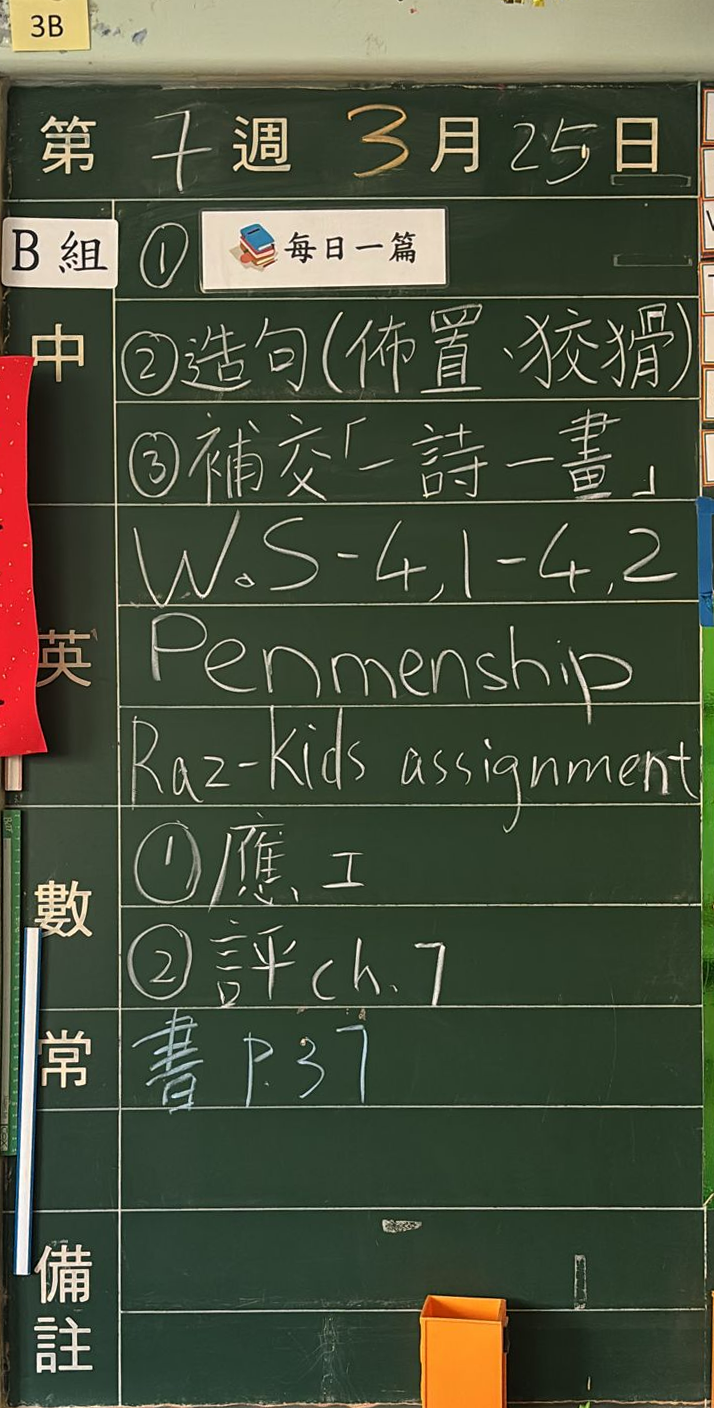 3B
第 7 週 3 月 25 日
B 組 ① 每日一篇
中 ②造句(佈置、狡猾)
③補交「一詩一畫」
W.S-4,1-4,2
英 Penmenship
Raz-Kids assignment
①應工
數 ②評ch.7
常 書 P.37
備註